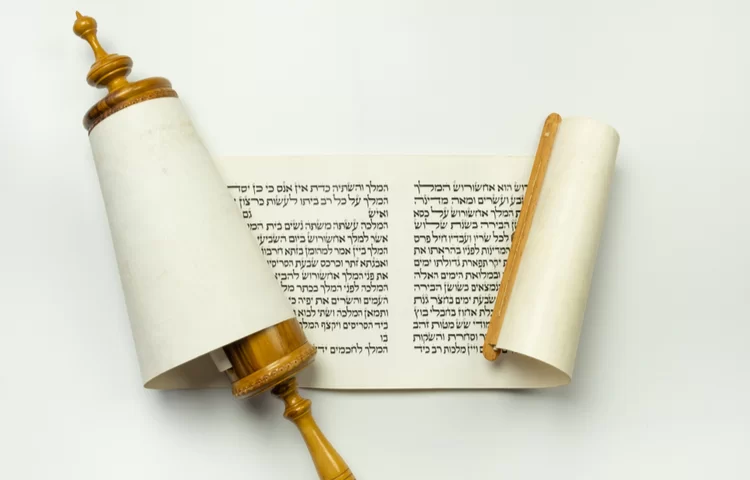 הוא אחשורוש המלך
ועשרים ומאה מדינה
המלך אחשורוש על כסא
הבירה בשנת שלוש
לכל שריו ועבדיו חיל פרס
המדינות לפניו בהראותו את
יקר תפארת גדולתו ימים
ובמלואת הימים האלה
הנמצאים בשושן הבירה
שבעת ימים בחצר גנת
אחוז בחבלי בוץ
שש מטות זהב
וסחרת והשקות
ויין מלכות רב כיד
המלך והשתיה כדת אין אנס כי כן יסד
המלך על כל רב ביתו לעשות כרצון
ואיש גם
המלכה עשתה משתה נשים בית
אשר למלך אחשורוש ביום השביעי
המלך ביין אמר למהומן בזתא
ואבגתא זתר וכרכס שבעת
את פני המלך אחשורוש
המלכה לפני המלך בכתר
העמים והשרים את יפיה
ותמאן המלכה ושתי לבוא
ביד הסריסים ויקצף
בו
המלך לחכמים